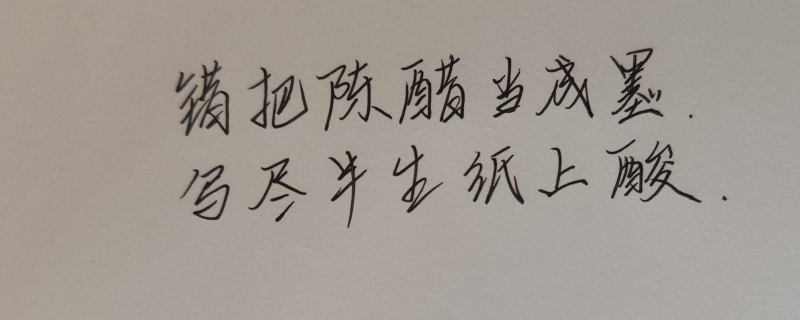 错把陈醋当成墨.
写尽半生纸上酸.